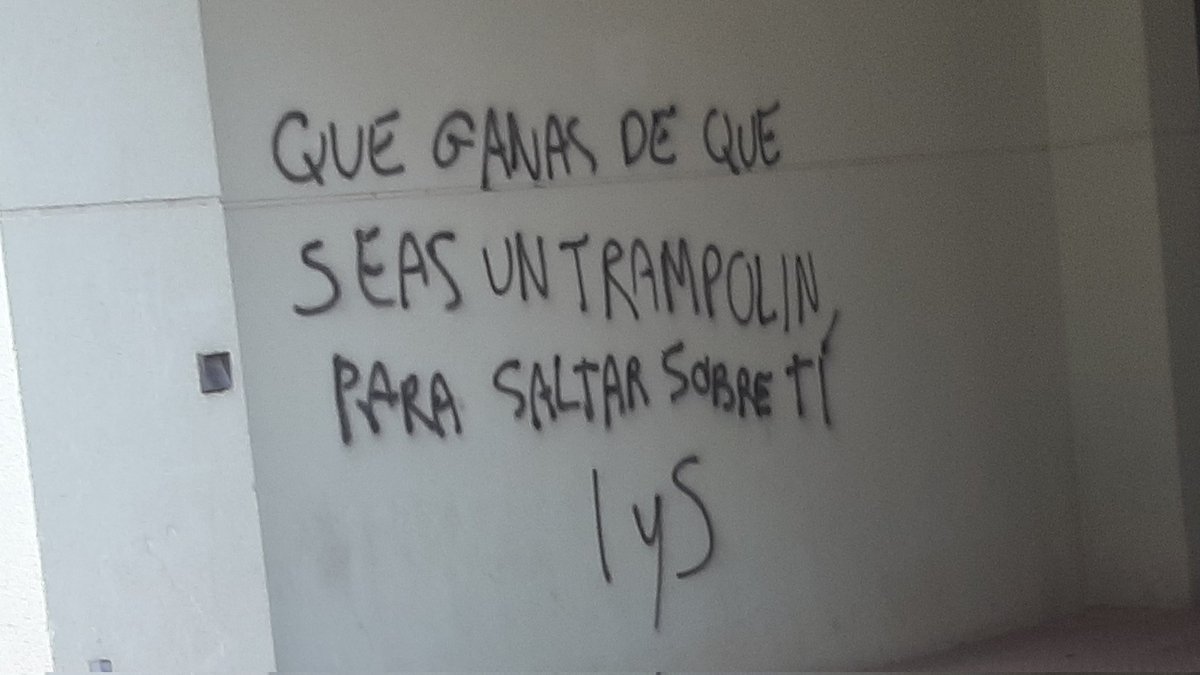 QUE GANAS DE QUE
SEAS UN TRAMPOLIN,
PARA SALTAR SOBRE TÍ
I y S